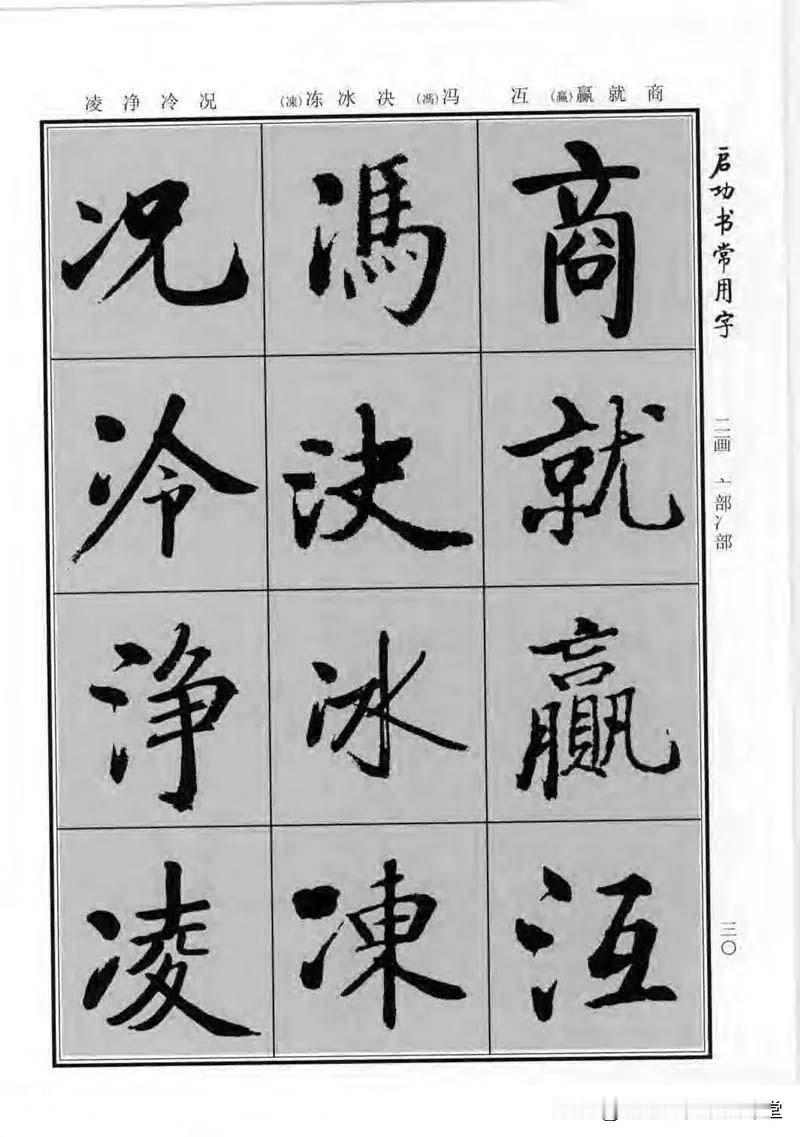 商就赢(贏)冱 冯(馮)决冰冻(凍) 况冷净凌
启功书常用字
二画 亠部冫部
三〇
商就贏冱
馮决冰凍
况冷净凌